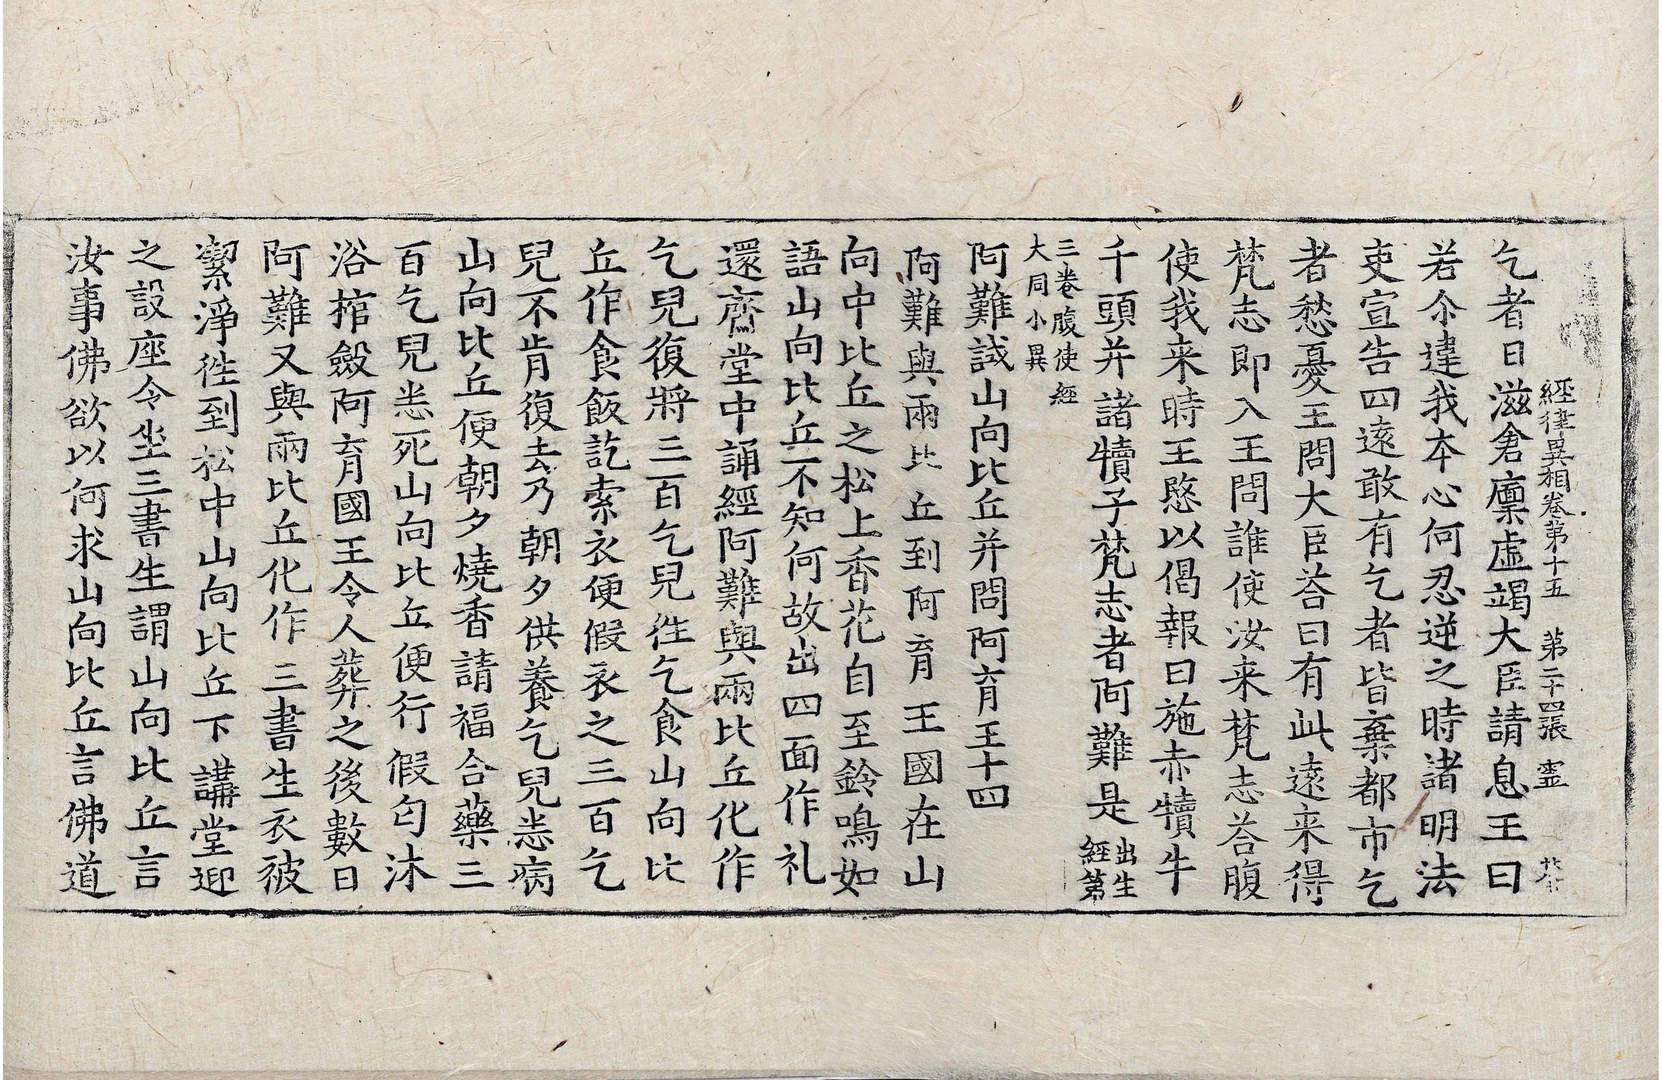 經律異相卷第十五 第二十四張 靈
乞者日滋倉廩虛竭大臣請息王曰
若尒違我本心何忍逆之時諸明法
吏宣告四遠敢有乞者皆棄都市乞
者愁憂王問大臣荅曰有此遠来得
梵志即入王問誰使汝来梵志荅腹
使我来時王愍以偈報曰施赤犢牛
千頭并諸犢子梵志者阿難是出生經第
三卷腹使經
大同小異
阿難試山向比丘并問阿育王十四
阿難與兩比丘到阿育王國在山
向中比丘之松上香花自至鈴鳴如
語山向比丘不知何故出四面作礼
還齋堂中誦經阿難與兩比丘化作
乞兒復將三百乞兒往乞食山向比
丘作食飯訖索衣便假衣之三百乞
兒不肯復去乃朝夕供養乞兒悉病
山向比丘便朝夕燒香請福合藥三
百乞兒悉死山向比丘便行假匃沐
浴棺斂阿育國王令人葬之後數日
阿難又與兩比丘化作三書生衣被
潔淨徃到松中山向比丘下講堂迎
之設座令坐三書生謂山向比丘言
汝事佛欲以何求山向比丘言佛道